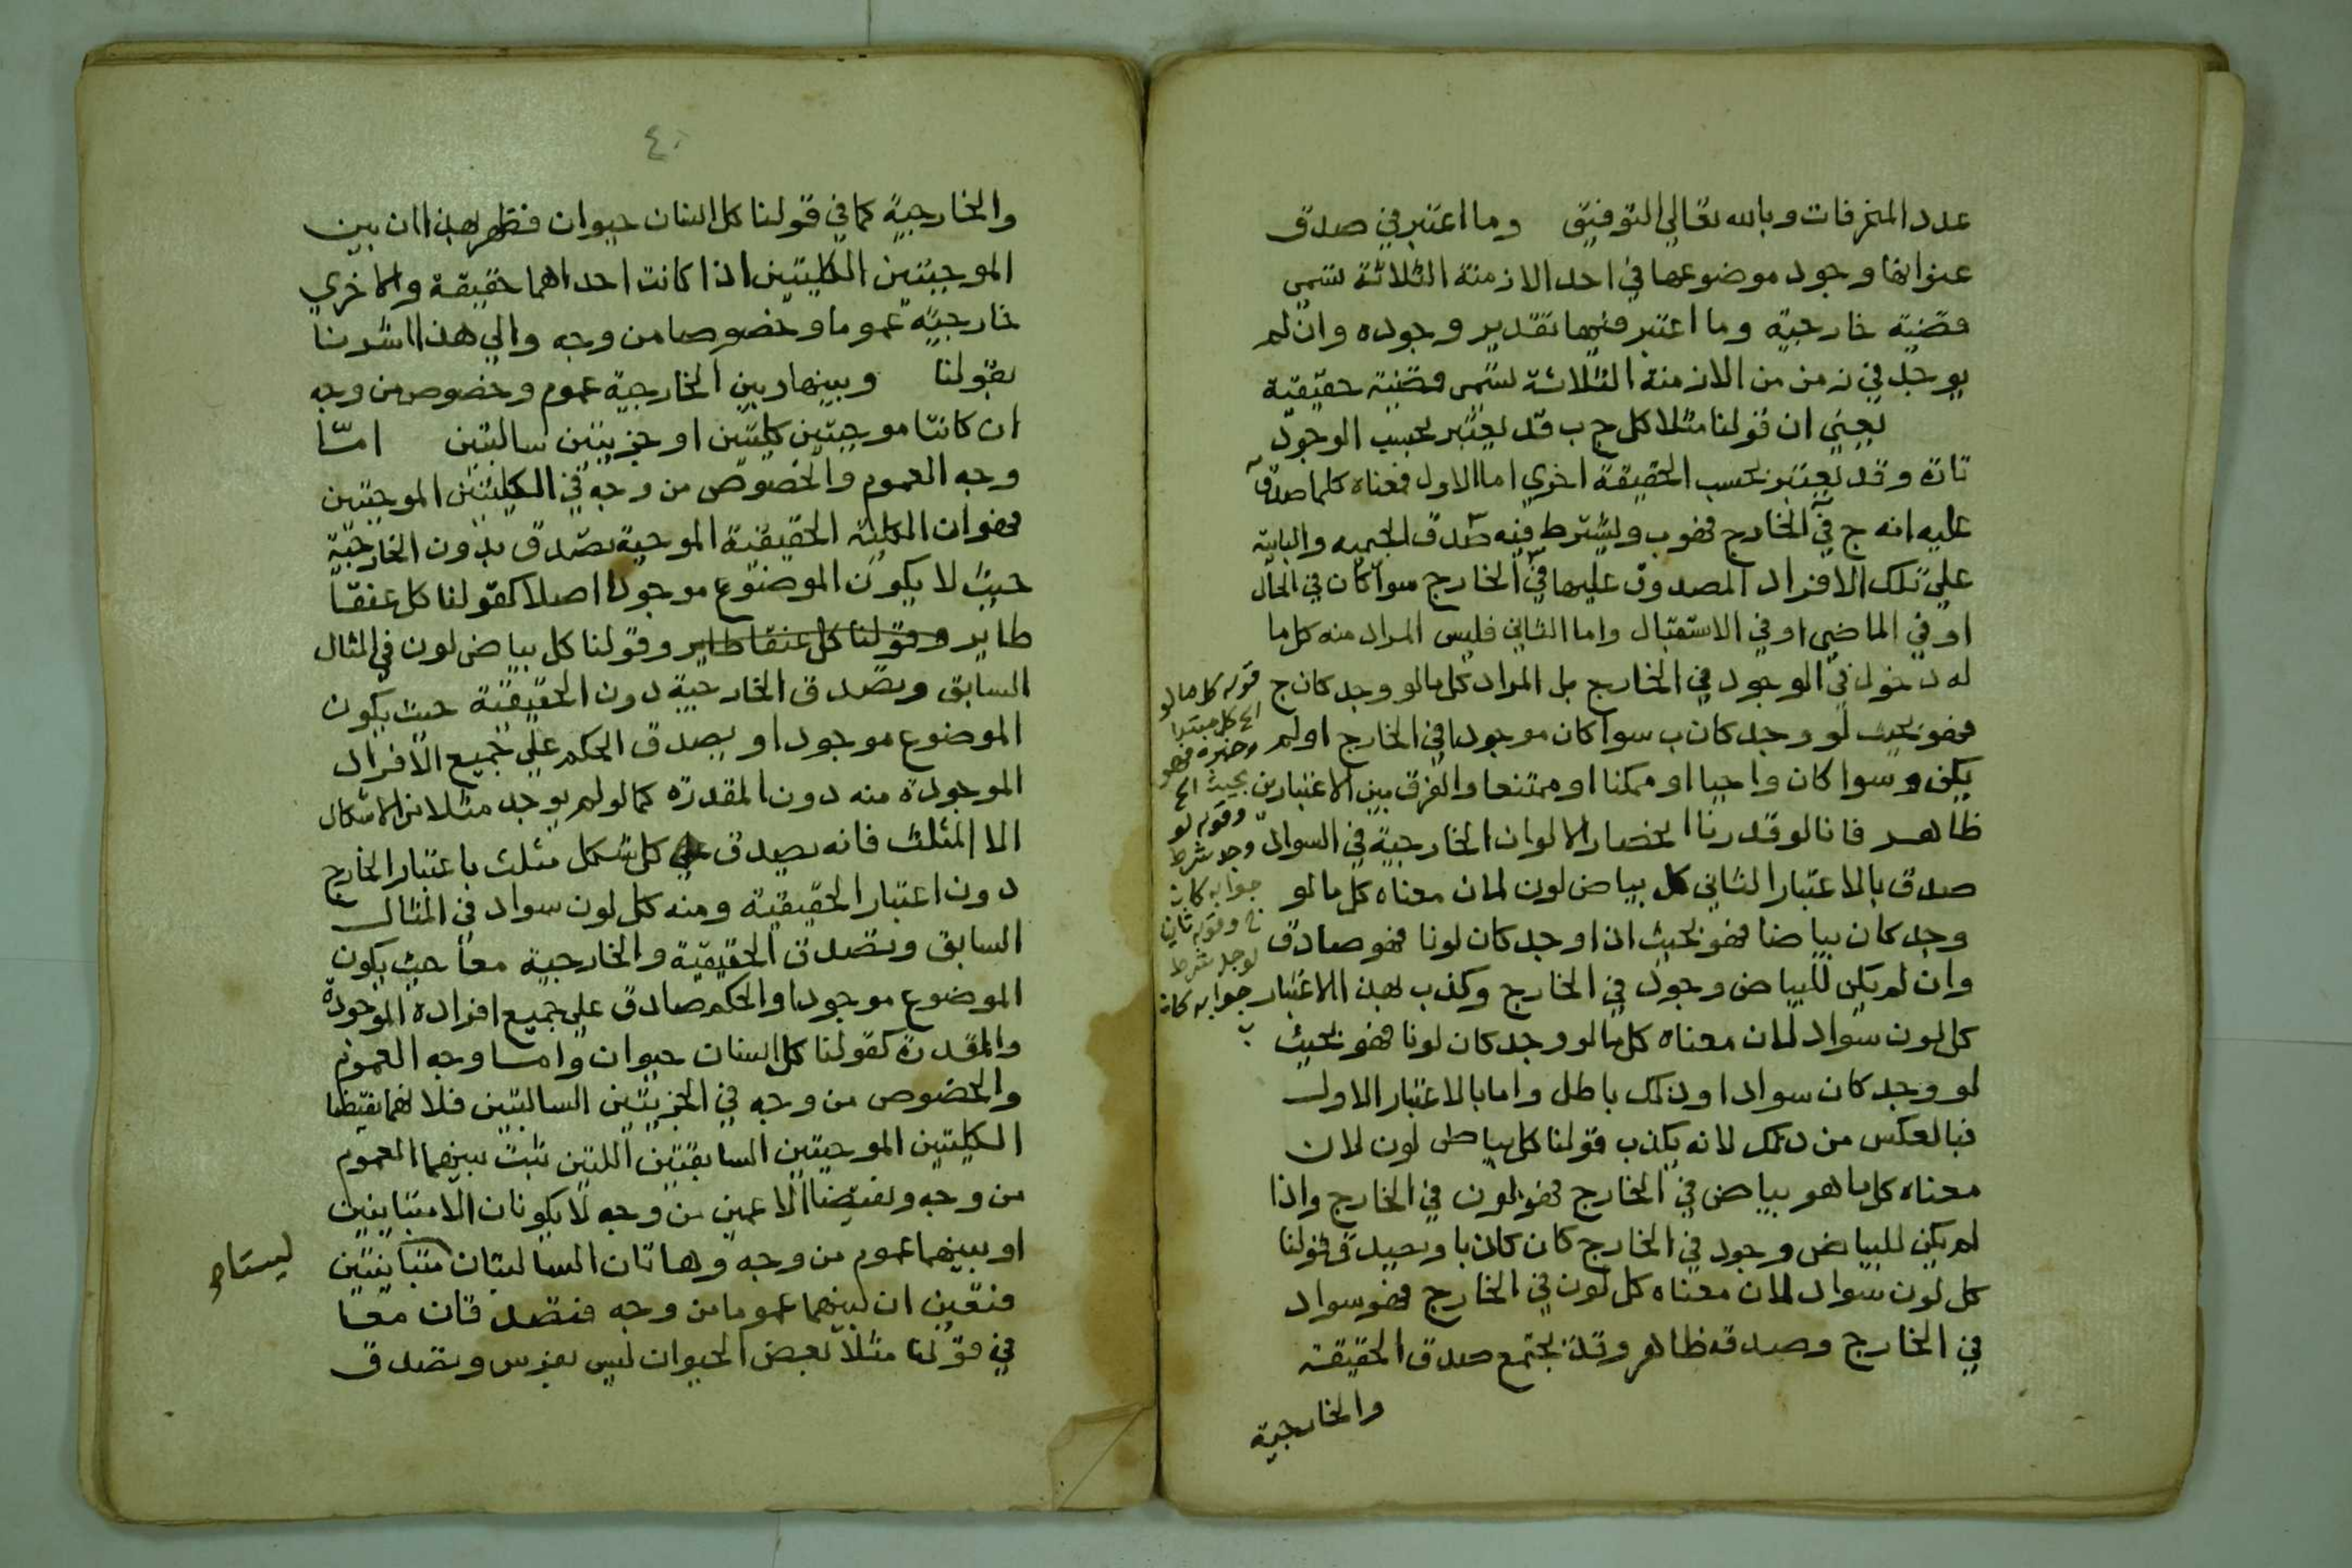 عدد المنحرفات وبالله تعالي التوفيق وما اعتبر في صدق
عنوانها وجود موضوعها في احد الازمنة الثلاثة تسمي
قضية خارجية وما اعتبر فيها تقدير وجوده وان لم
يوجد في زمن من الازمنة الثلاثة تسمي قضية حقيقية
يعني ان قولنا مثلا كل ج ب قد يعتبر بحسب الوجود
تارة وقد يعتبر بحسب الحقيقة اخري اما الاول فمعناه كلما صدق
عليه انه ج في الخارج فهو ب ويشترط فيه صدق الجيميه والبايية
علي تلك الافراد المصدوق عليها في الخارج سوا كان في الحال
او في الماضي او في الاستقبال واما الثاني فليس المراد منه كل ما
له دخول في الوجود في الخارج بل المراد كل ما لو وجد كان ج
فهو بحيث لو وجد كان ب سوا كان موجودا في الخارج او لم
يكن وسوا كان واجبا او ممكنا او ممتنعا والفرق بين الاعتبارين
ظاهر فانا لو قدرنا انحصار الالوان الخارجية في السواد
صدق بالاعتبار الثاني كل بياض لون لان معناه كل ما لو
وجد كان بياضا فهو بحيث اذا وجد كان لونا فهو صادق
وان لم يكن للبياض وجود في الخارج وكذب بهذا الاعتبار
كل لون سواد لان معناه كل ما لو وجد كان لونا فهو بحيث
لو وجد كان سوادا وذلك باطل واما بالاعتبار الاول
فبالعكس من ذلك لانه يكذب قولنا كل بياض لون لان
معناه كل ما هو بياض في الخارج فهو لون في الخارج واذا
لم يكن للبياض وجود في الخارج كان كاذبا ويصدق قولنا
كل لون سواد لان معناه كل لون في الخارج فهو سواد
في الخارج وصدقه ظاهر وقد يجتمع صدق الحقيقية
والخارجية
قوله كل ما لو
الخ كل مبتدا
وخبره فهو
بحيث الخ
وقوله لو
وجد شرط
جوابه كان
ج وقوله ثاني
لو وجد شرط
جوابه كان
ب
٤٠
والخارجية كما في قولنا كل انسان حيوان فظهر بهذا ان بين
الموجبتين الكليتين اذا كانت احداهما حقيقة والاخري
خارجية عموما وخصوصا من وجه والي هذا اشرنا
بقولنا وبينها وبين الخارجية عموم وخصوص من وجه
ان كانتا موجبتين كليتين او جزييتين سالبتين اما
وجه العموم والخصوص من وجه في الكليتين الموجبتين
فهو ان الكلية الحقيقية الموجبة تصدق بدون الخارجية
حيث لا يكون الموضوع موجودا اصلا كقولنا كل عنقا
طاير وقولنا كل عنقا طاير وقولنا كل بياض لون في المثال
السابق وتصدق الخارجية دون الحقيقية حيث يكون
الموضوع موجودا ويصدق الحكم علي جميع الافراد
الموجودة منه دون المقدرة كما لو لم يوجد مثلا من الاشكال
الا المثلث فانه يصدق كل شكل مثلث باعتبار الخارج
دون اعتبار الحقيقية ومنه كل لون سواد في المثال
السابق وتصدق الحقيقية والخارجية معا حيث يكون
الموضوع موجودا والحكم صادق علي جميع افراده الموجودة
والمقدرة كقولنا كل انسان حيوان واما وجه العموم
والخصوص من وجه في الجزييتين السالبتين فلانهما نقيضا
الكليتين الموجبتين السابقتين اللتين ثبت بينهما العموم
من وجه ونقيضا الاعمين من وجه لا يكونان الا متباينين
او بينهما عموم من وجه وهاتان السالبتان متباينتين
ليستا
فتعين ان بينهما عموما من وجه فتصدقان معا
في قولنا مثلا بعض الحيوان ليس بفرس وتصدق